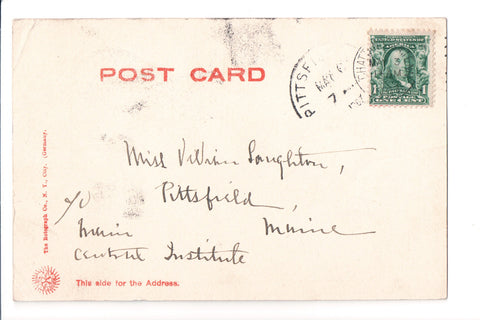 POST CARD
PITTSF
MAY 6
7
1
ONE CENT
Miss Vivian Loughton,
Pittsfield,
Maine
c/o
Maine
Central Institute
The Rotograph Co., N. Y. City. (Germany.
This side for the Address.